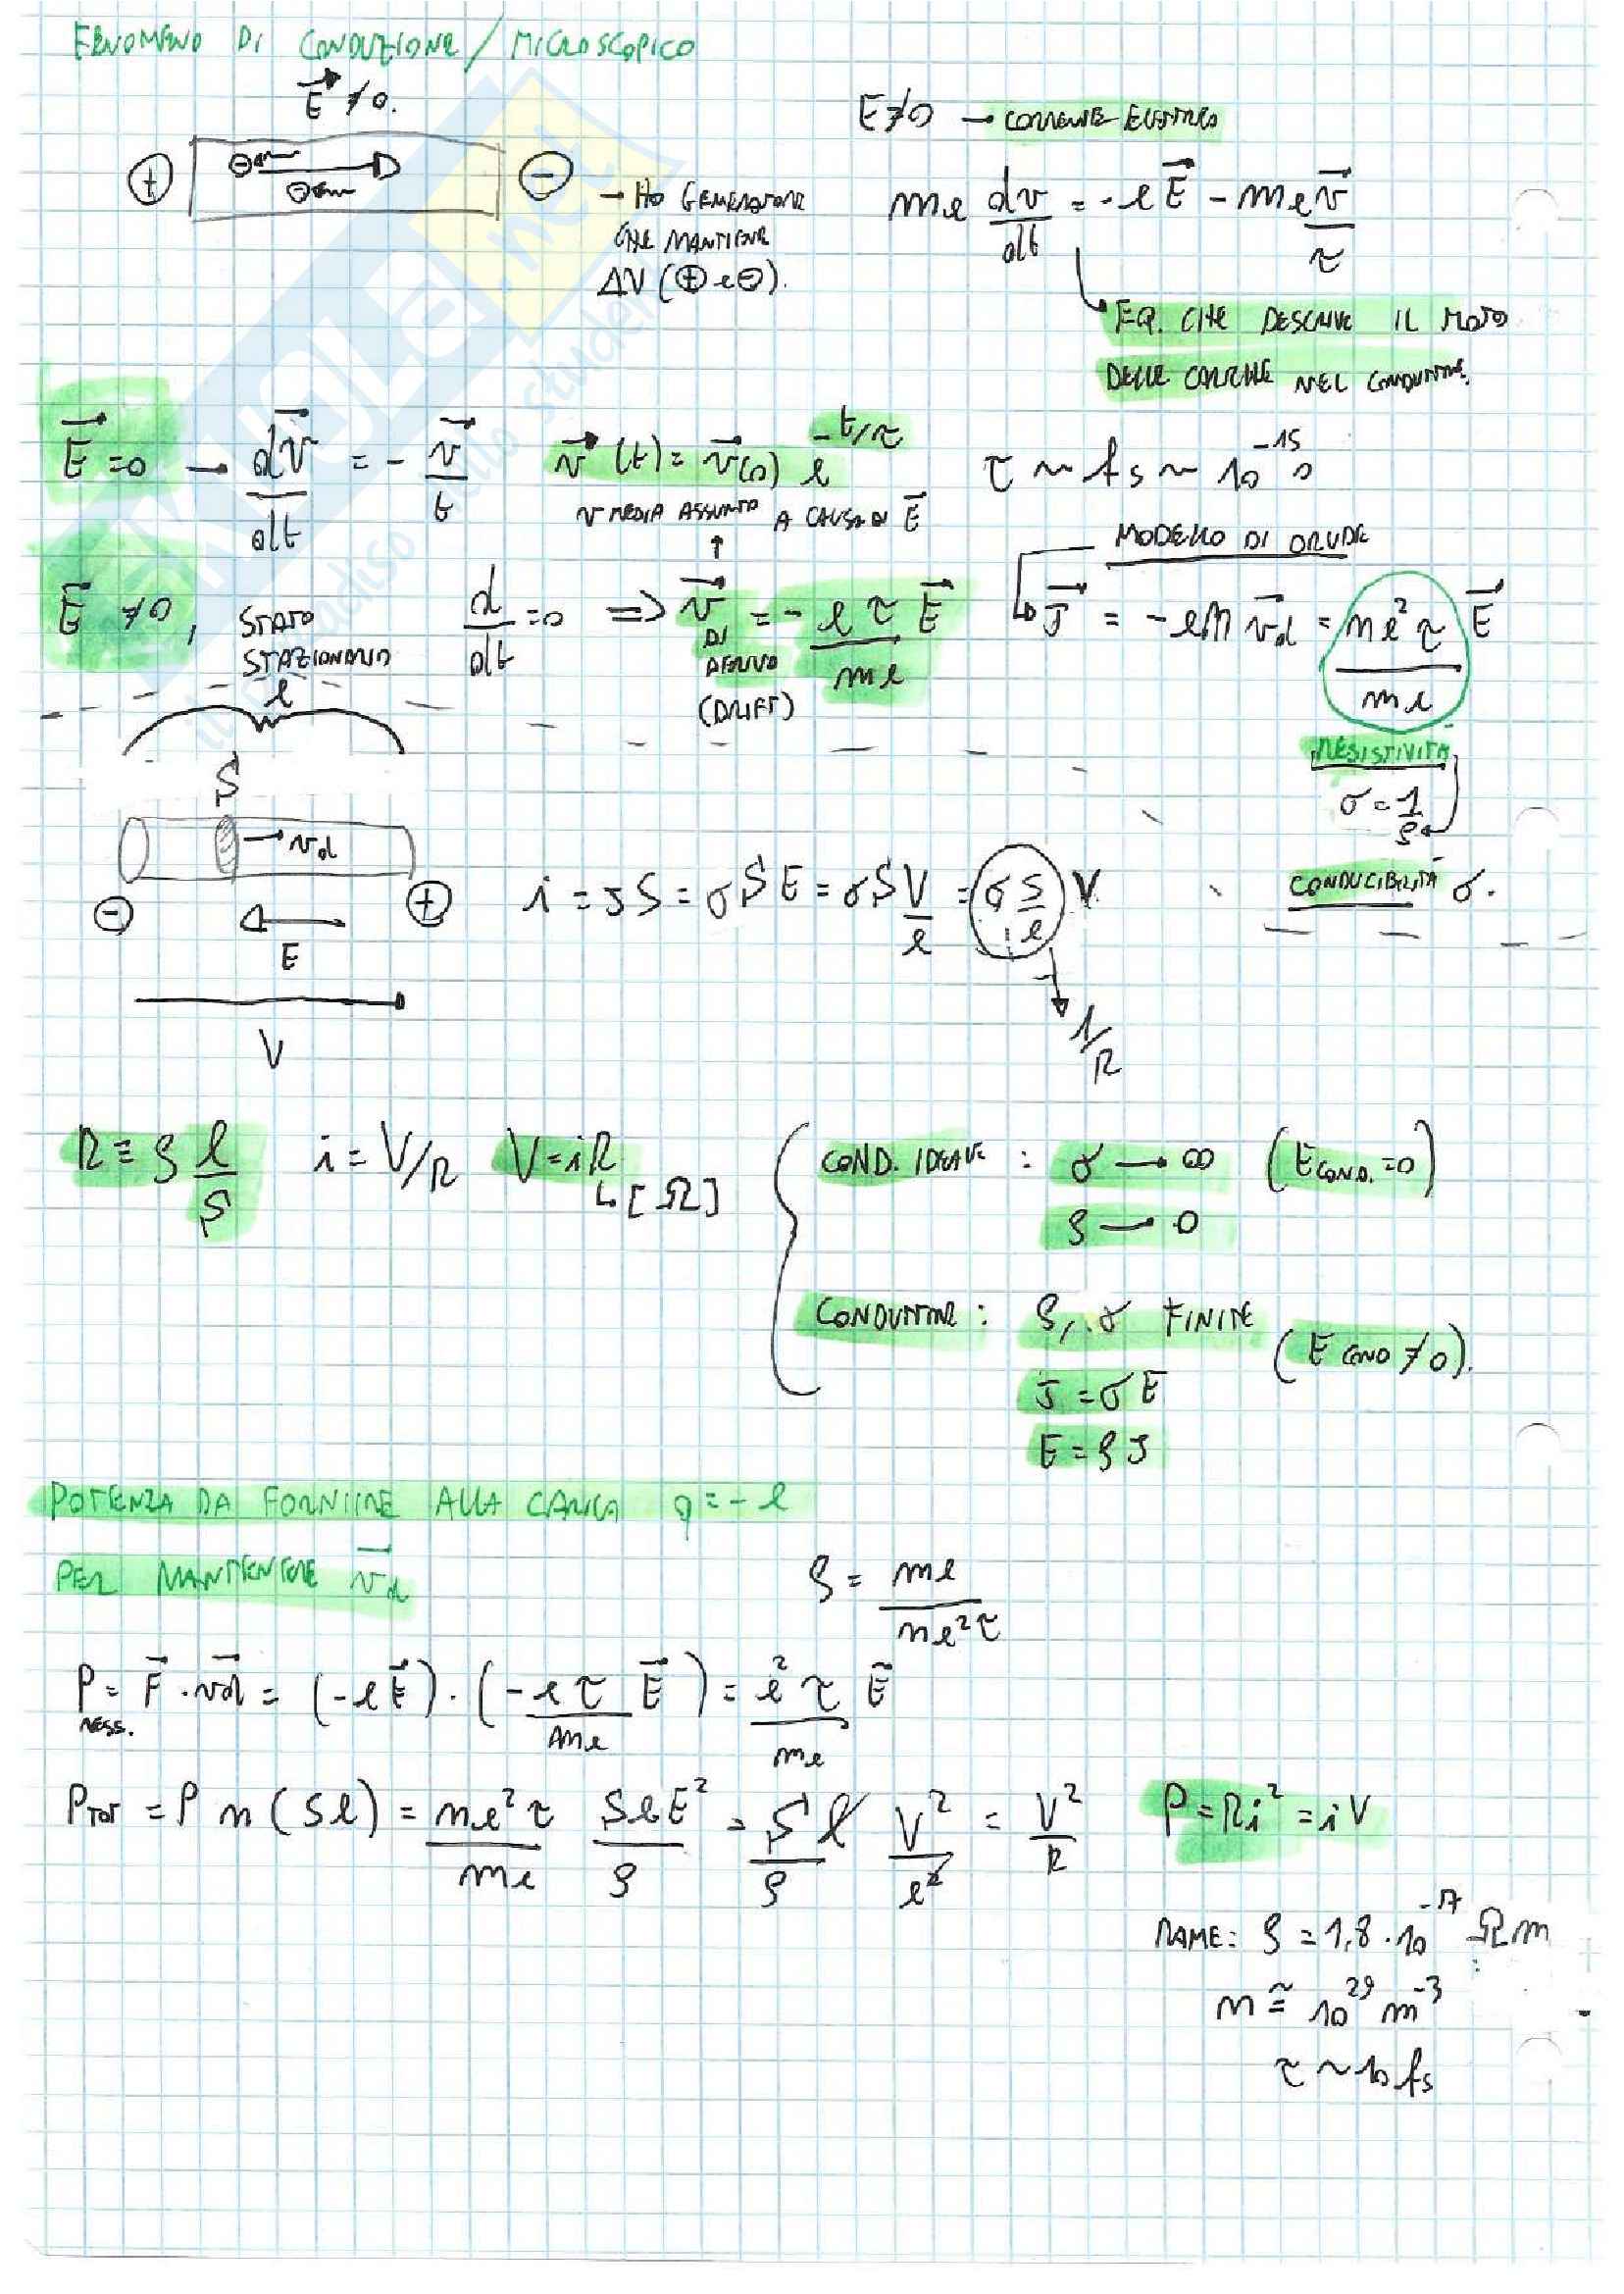 FENOMENO DI CONDUZIONE / MICROSCOPICO
E⃗ ≠ 0.
E≠0 → CORRENTE ELETTRICA
⊕ ⊖
→ HO GENERATORE
CHE MANTIENE
ΔV (⊕ e ⊖).
me dv/dt = -e E⃗ - me v⃗/τ
EQ. CHE DESCRIVE IL MOTO
DELLE CARICHE NEL CONDUTTORE.
E⃗ = 0 → dv⃗/dt = - v⃗/t
v⃗(t) = v⃗(0) e^(-t/τ)
τ ~ fs ~ 10^-15 s
v MEDIA ASSUNTA A CAUSA DI E⃗
MODELLO DI DRUDE
E⃗ ≠ 0, STATO STAZIONARIO
d/dt = 0 => v⃗ DI DERIVA (DRIFT) = - eτ/me E⃗
J⃗ = -en v⃗d = ne²τ/me E⃗
RESISTIVITÀ
σ = 1/ρ
CONDUCIBILITÀ σ.
l
S
→ vd
⊖ ⊕
E
V
i = JS = σSE = σS V/l = σ S/l V
1/R
R ≡ ρ l/S i = V/R V = iR
[Ω]
COND. IDEALE : σ → ∞ (E COND. = 0)
ρ → 0
CONDUTTORE : ρ, σ FINITE (E COND ≠ 0).
J = σE
E = ρJ
POTENZA DA FORNIIRE ALLA CARICA q = -e
PER MANTENERE v⃗d
ρ = me/ne²τ
P NESS. = F⃗ · v⃗d = (-eE⃗) · (-eτ/me E⃗) = e²τ/me E⃗
PTOT = P n (Sl) = ne²τ/me SlE²/ρ = S/ρ l V²/l² = V²/R
P = Ri² = iV
RAME: ρ = 1,8 · 10^-17 Ωm
n ≅ 10^29 m^-3
τ ~ 10 fs